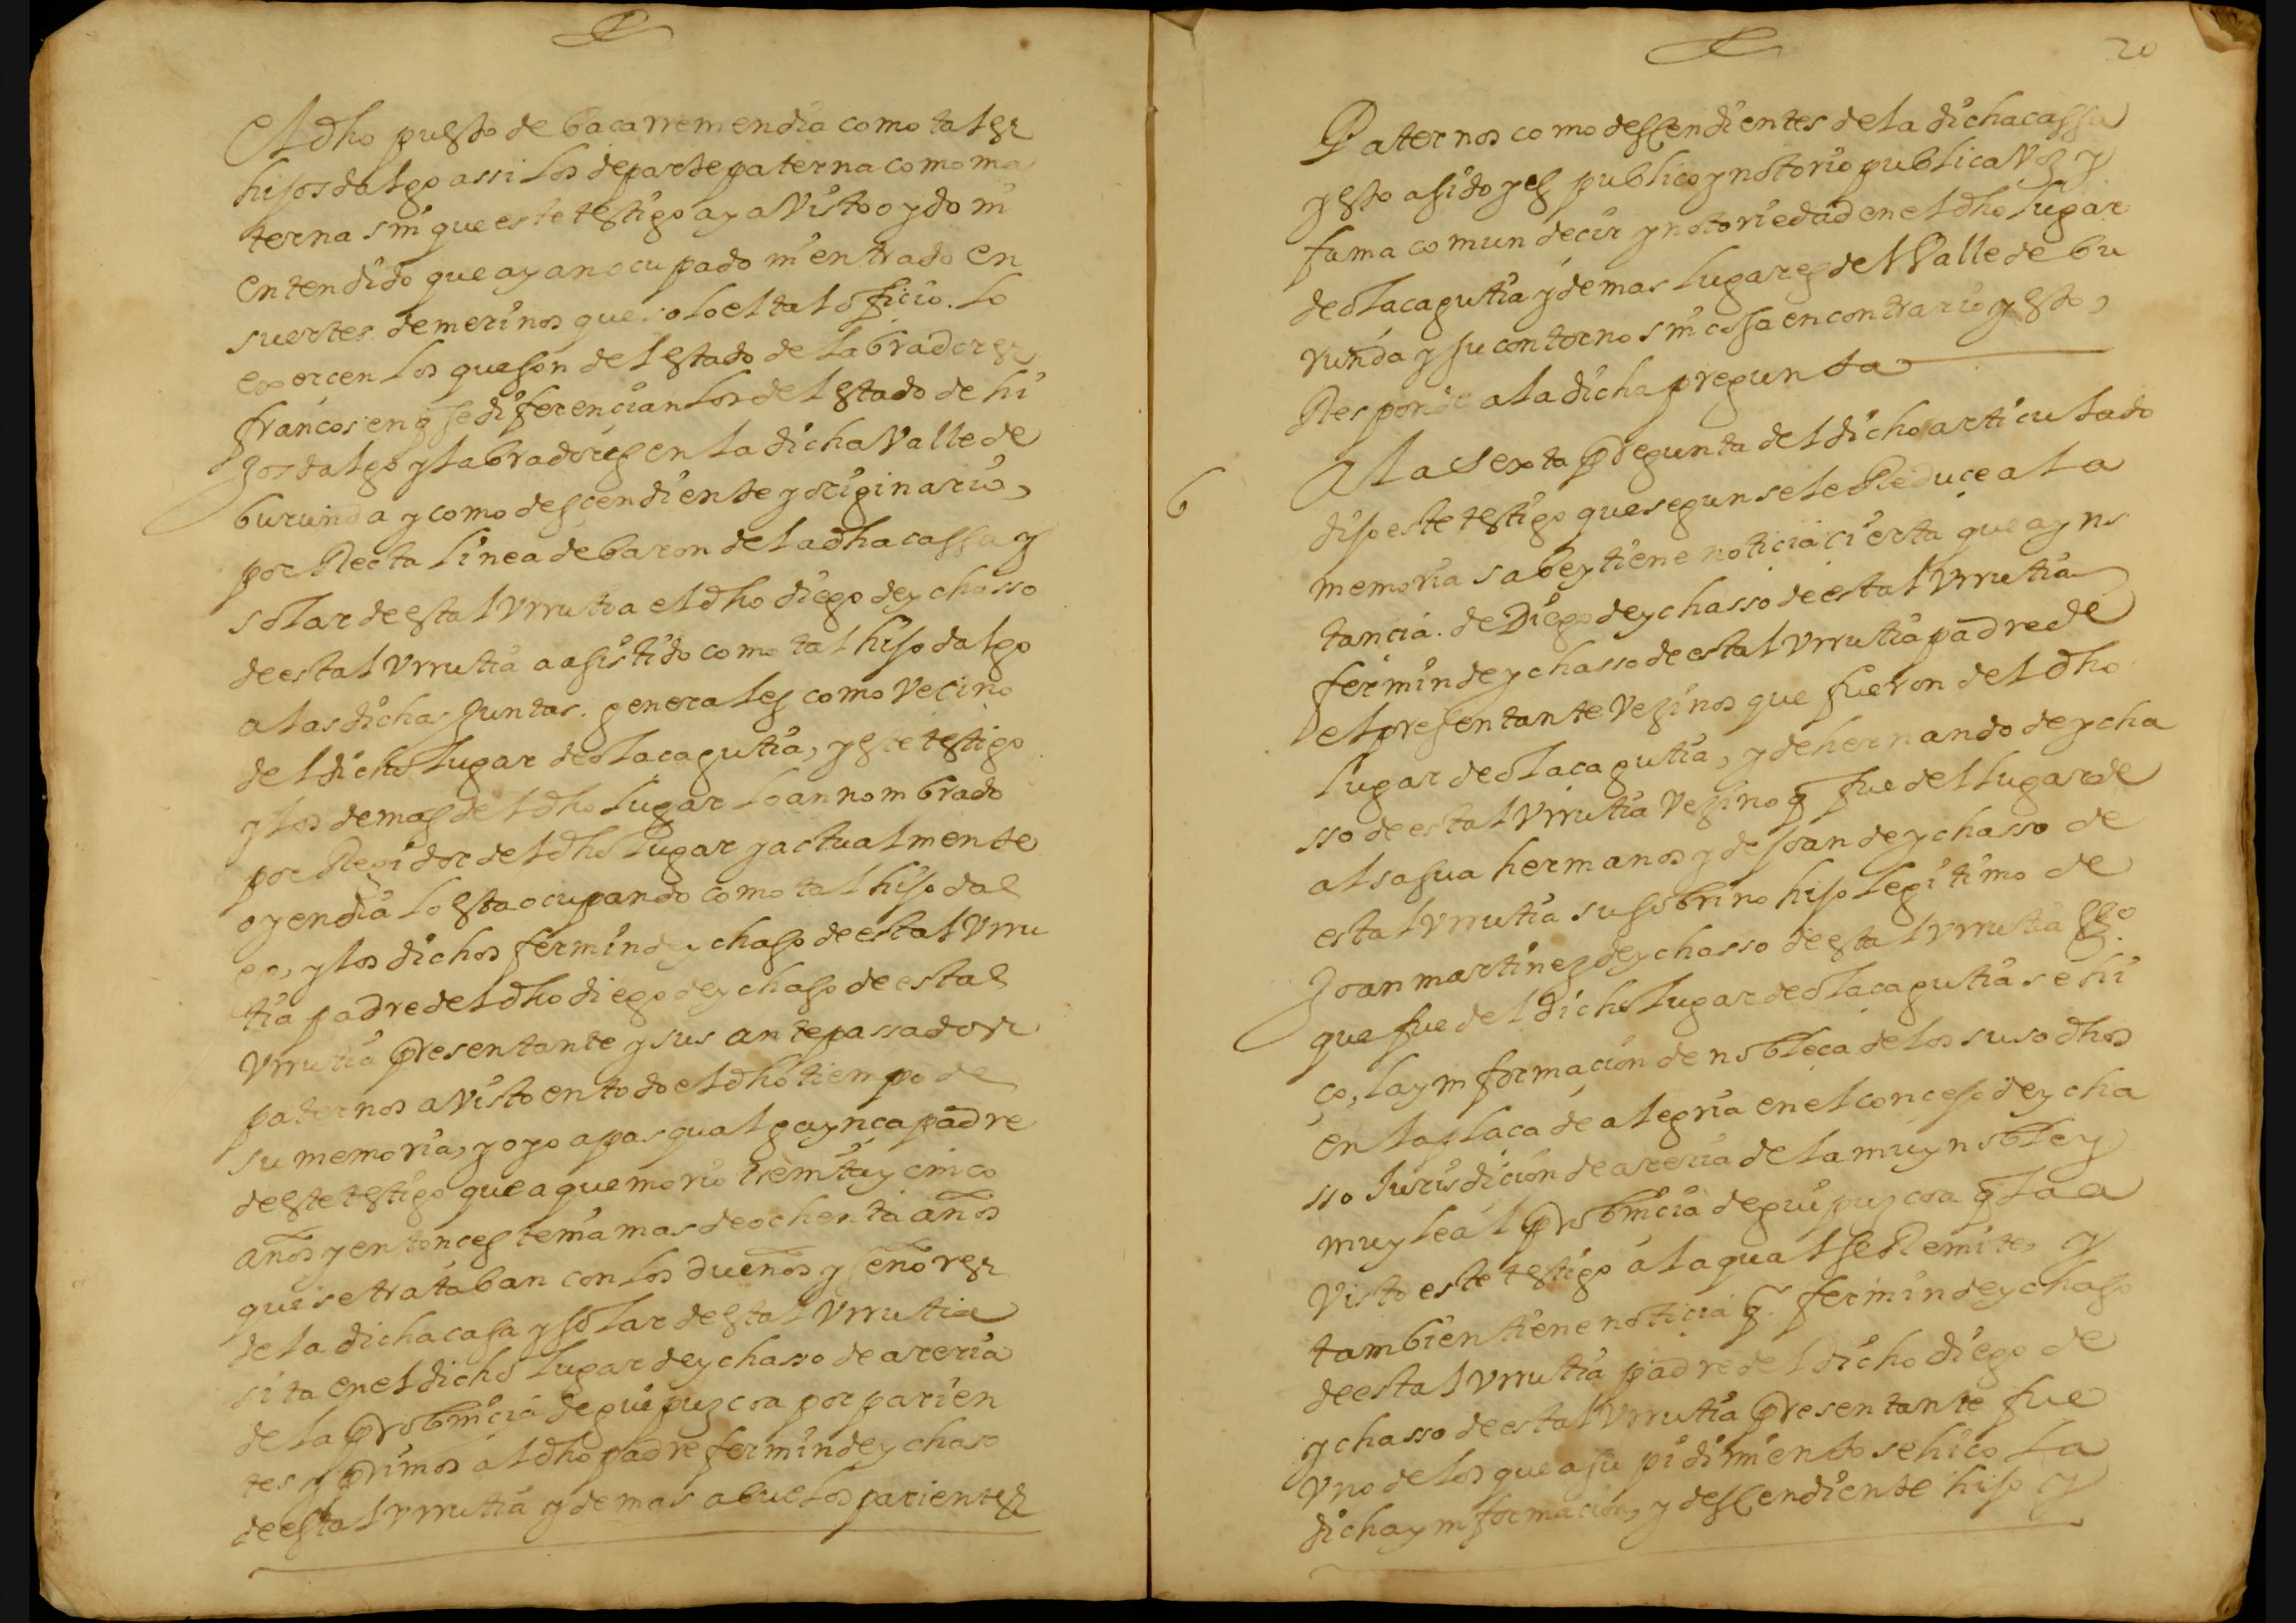 El dho puesto de bacarremendia como tales
hijosdalgo assi los de parte paterna como ma
terna sin que este testigo aya Visto oydo ni
entendido que ayan ocupado ni entrado en
suertes de merinos que solo el tal oficio. lo
exercen los que son del estado de labradores
francos en q se diferencian los del estado de hi
Josdalgo y labradores en la dicha Valle de
burunda y como descendiente y originario,
por Recta linea de baron de la dha cassa y
solar de estal Vrrutia el dho diego de ychasso
de estal Vrrutia a asistido como tal hijo dalgo
a las dichas Juntas. generales como Vecino
del dicho lugar de olacagutia, y este testigo
y los demas del dho lugar lo an nombrado
por Regidor del dho lugar y actualmente
oy en dia lo esta ocupando como tal hijo dal
go, y los dichos fermin de ychaso de estal Vrru
tia padre del dho diego de ychaso de estal
Vrrutia presentante y sus antepassados
paternos a Visto en todo el dho tiempo de
su memoria, y oyo a pasqual gaynca padre
de este testigo que a que murio treinta y cinco
años y entonces tenia mas de ochenta años
que se trataban con los dueños y señores
de la dicha casa y solar de estal Vrrutia
sita en el dicho lugar de ychasso de areria
de la probincia de guipuzcoa por parien
tes y primos al dho padre fermin de ychaso
de estal Vrrutia y demas abuelos parientes
20
Paternos como descendientes de la dicha cassa
y esto a sido y es publico y notorio publica Voz y
fama comun decir y notoriedad en el dho lugar
de olacagutia y demas lugares del Valle de bu
runda y su contorno sin cossa en contrario y esto,
Responde a la dicha pregunta
6
A la sexta Pregunta del dicho articulado
dijo este testigo que segun se le Reduce a la
memoria sabe y tiene noticia cierta que a yns
tancia. de Diego de ychasso de estal Vrrutia
fermin de ychasso de estal Vrrutia padre de
el presentante Vezinos que fueron del dho
lugar de olacagutia, y de hernando de ycha
sso de estal Vrrutia Vezino q fue del lugar de
alsasua hermanos y de Joan de ychasso de
estal Vrrutia su sobrino hijo legitimo de
Joan martinez de ychasso de estal Vrrutia
que fue del dicho lugar de olacagutia se hi
ço, la ynformacion de nobleça de los suso dhos
en la plaça de alegria en el concejo de ycha
sso Jurisdicion de areria de la muy noble y
muy leal probincia de guipuzcoa q la a
Visto este testigo a la qual se Remite, y
tambien tiene noticia q. fermin de ychaso
de estal Vrrutia padre del dicho diego de
ychasso de estal Vrrutia Presentante fue
Vno de los que a su pidimiento se hiço la
dicha ynformacion, y descendiente hijo y